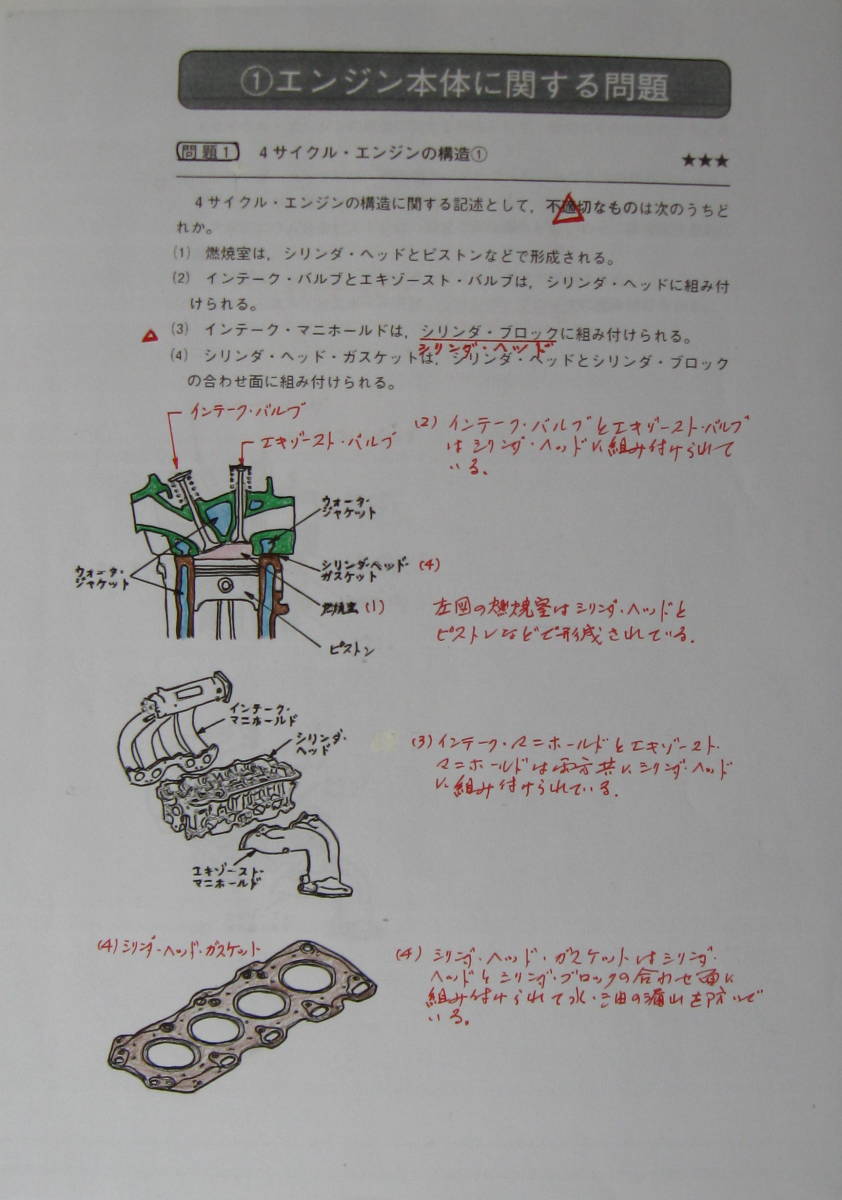 ①エンジン本体に関する問題
問題1 4サイクル・エンジンの構造① ★★★
4サイクル・エンジンの構造に関する記述として，不適切なものは次のうちど
れか。
(1) 燃焼室は，シリンダ・ヘッドとピストンなどで形成される。
(2) インテーク・バルブとエキゾースト・バルブは，シリンダ・ヘッドに組み付
けられる。
(3) インテーク・マニホールドは，シリンダ・ブロックに組み付けられる。
シリンダ・ヘッド
(4) シリンダ・ヘッド・ガスケットは，シリンダ・ヘッドとシリンダ・ブロック
の合わせ面に組み付けられる。
インテーク・バルブ
エキゾースト・バルブ
(2) インテーク・バルブとエキゾースト・バルブ
はシリンダ・ヘッドに組み付けられて
いる。
ウォータ・
ジャケット
ウォータ・
ジャケット
シリンダ・ヘッド・
ガスケット
(4)
燃焼室 (1)
ピストン
左図の燃焼室はシリンダ・ヘッドと
ピストンなどで形成されている。
インテーク・
マニホールド
シリンダ・
ヘッド
エキゾースト・
マニホールド
(3) インテーク・マニホールドとエキゾースト・
マニホールドは両方共にシリンダ・ヘッド
に組み付けられている。
(4) シリンダ・ヘッド・ガスケット
(4) シリンダ・ヘッド・ガスケットはシリンダ・
ヘッドとシリンダ・ブロックの合わせ面に
組み付けられて水・油の漏れを防いで
いる。